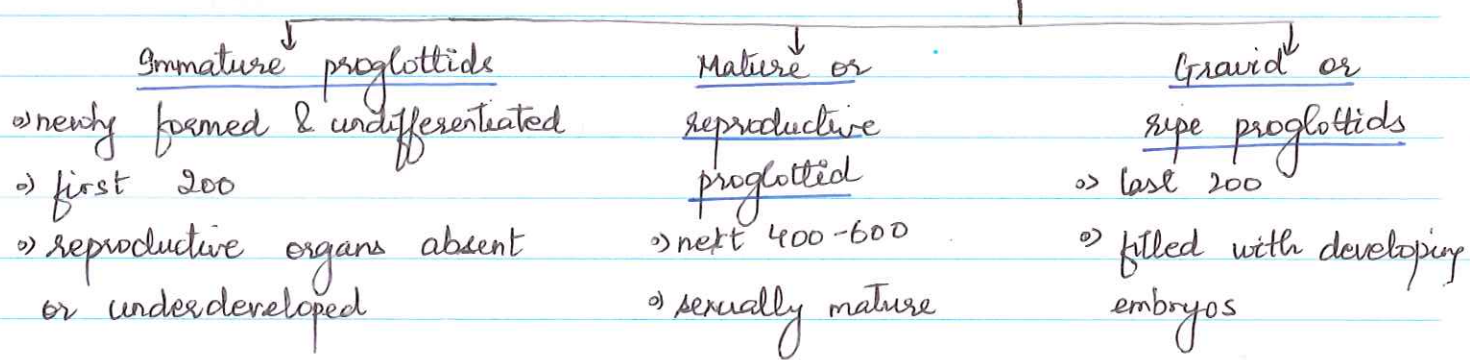 Immature proglottids
o) newly formed & undifferentiated
o) first 200
o) reproductive organs absent
or underdeveloped
Mature or
reproductive
proglottid
o) next 400-600
o) sexually mature
Gravid or
ripe proglottids
o) last 200
o) filled with developing
embryos